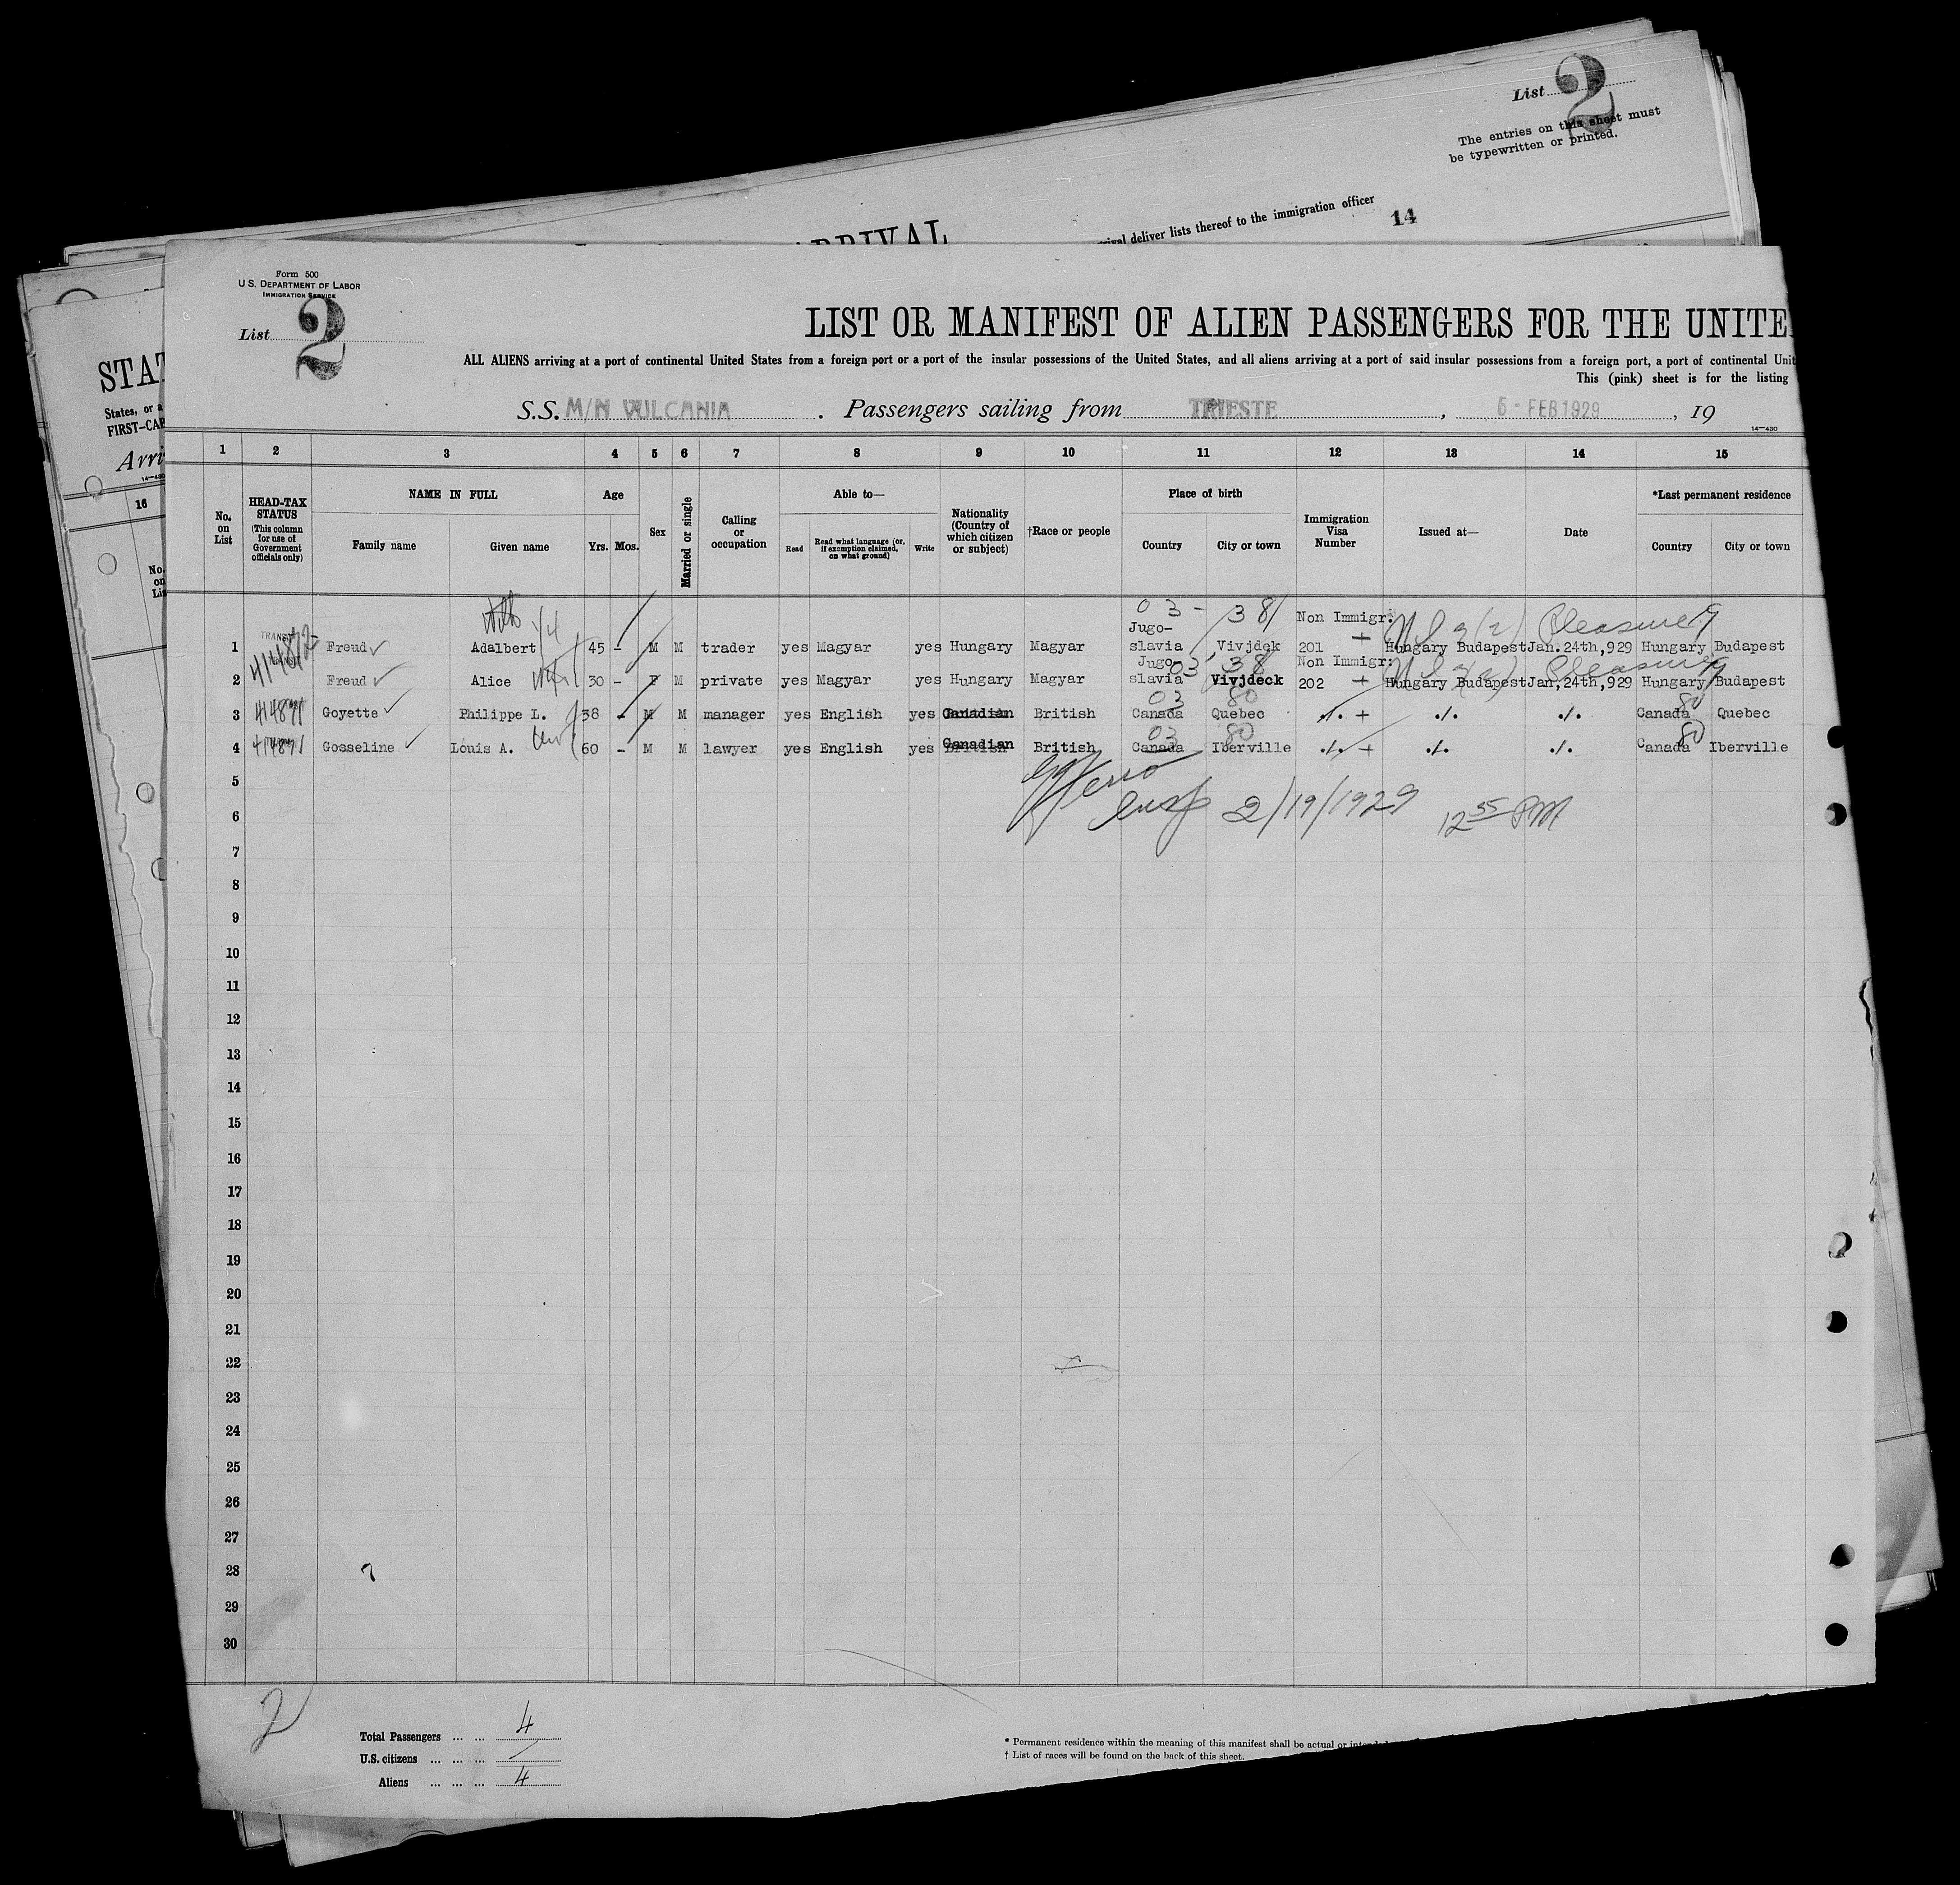 List 2
The entries on this sheet must
be typewritten or printed.
ARRIVAL
rival deliver lists thereof to the immigration officer
14
STAT
States, or a
FIRST-CAB
Arri
14-430
16
No.
on
Lis
Form 500
U.S. DEPARTMENT OF LABOR
IMMIGRATION SERVICE
List 2
LIST OR MANIFEST OF ALIEN PASSENGERS FOR THE UNITE
ALL ALIENS arriving at a port of continental United States from a foreign port or a port of the insular possessions of the United States, and all aliens arriving at a port of said insular possessions from a foreign port, a port of continental Unit
This (pink) sheet is for the listing
S.S. M/N VULCANIA . Passengers sailing from TRIESTE , 5 - FEB 1929 , 19
14-430
1 2 3 4 5 6 7 8 9 10 11 12 13 14 15
No. on List
HEAD-TAX STATUS (This column for use of Government officials only)
NAME IN FULL
Family name Given name
Age
Yrs. Mos.
Sex
Married or single
Calling or occupation
Able to—
Read Read what language (or, if exemption claimed, on what ground) Write
Nationality (Country of which citizen or subject)
†Race or people
Place of birth
Country City or town
Immigration Visa Number
Issued at—
Date
*Last permanent residence
Country City or town
03 - 38
TRANSIT Jugo- Non Immigr. Pleasure
1 Freud Adalbert 45 - M M trader yes Magyar yes Hungary Magyar slavia Vivjdek 201 + Hungary Budapest Jan.24th,929 Hungary Budapest
Jugo- 03 38 Non Immigr. Pleasure
2 Freud Alice 30 - F M private yes Magyar yes Hungary Magyar slavia Vivjdeck 202 + Hungary Budapest Jan,24th,929 Hungary Budapest
03 80 80
3 414871 Goyette Philippe L. 38 - M M manager yes English yes Canadian British Canada Quebec ./. + ./. ./. Canada Quebec
03 80 80
4 414871 Gosseline Louis A. 60 - M M lawyer yes English yes Canadian British Canada Iberville ./. + ./. ./. Canada Iberville
5
Insp 2/19/1929 12 55 PM
6
7
8
9
10
11
12
13
14
15
16
17
18
19
20
21
22
23
24
25
26
27
28
29
30
2
Total Passengers ... ... 4
U.S. citizens ... ... ... /
Aliens ... ... ... 4
* Permanent residence within the meaning of this manifest shall be actual or intended
† List of races will be found on the back of this sheet.